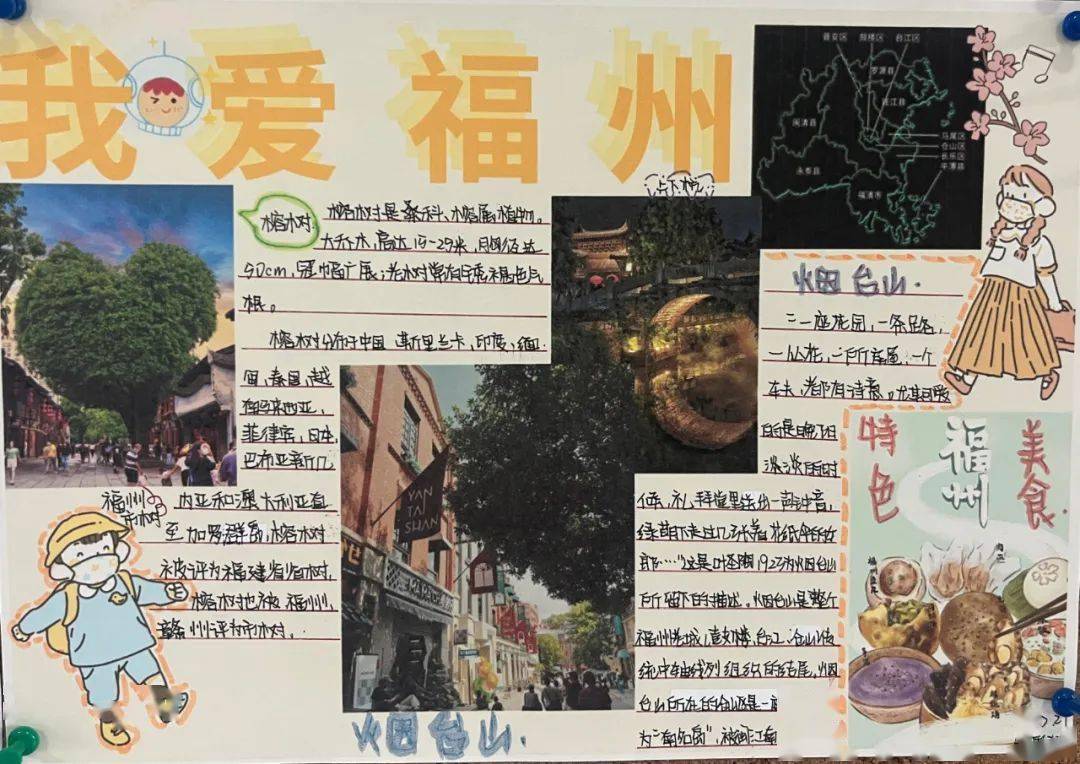 我爱福州
晋安区 鼓楼区 台江区
罗源县
连江县
闽清县
马尾区
仓山区
长乐区
平潭县
永泰县
福清市
上下杭
榕树
榕树是桑科、榕属植物。
大乔木,高达15-25米,胸径达
50cm,冠幅广展;老树常有锈褐色气
根。
榕树分布于中国、斯里兰卡、印度、缅
甸、泰国、越
南马来西亚、
菲律宾、日本、
巴布亚新几
内亚和澳大利亚直
至加罗群岛,榕树
被评为福建省省树,
榕树也被福州、
赣州评为市树。
福州
市树
YAN
TAI
SHAN
烟台山.
烟台山.
一座花园,一条足名,
一丛花,一所房屋,一个
车夫,都有诗意。尤其可爱
的是晚阳
淡淡的时
候,礼拜堂里送出一声钟音,
绿荫下走过几个张着花纸伞的女
郎…"这是叶圣陶1923为烟台山
所留下的描述。烟台山是整个
福州老城
统中轴线列组织的结尾,烟
台山所在的仓
为"南
特色
福州
美食.